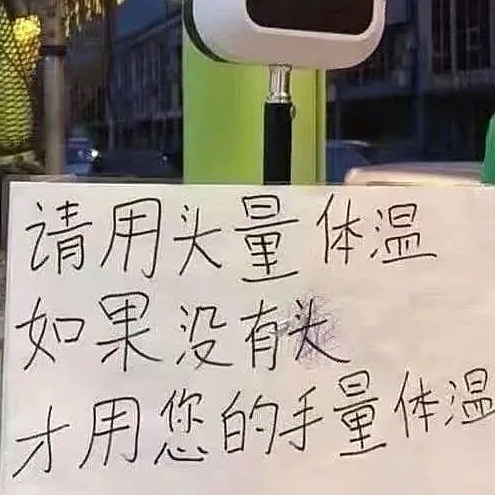 请用头量体温
如果没有头
才用您的手量体温